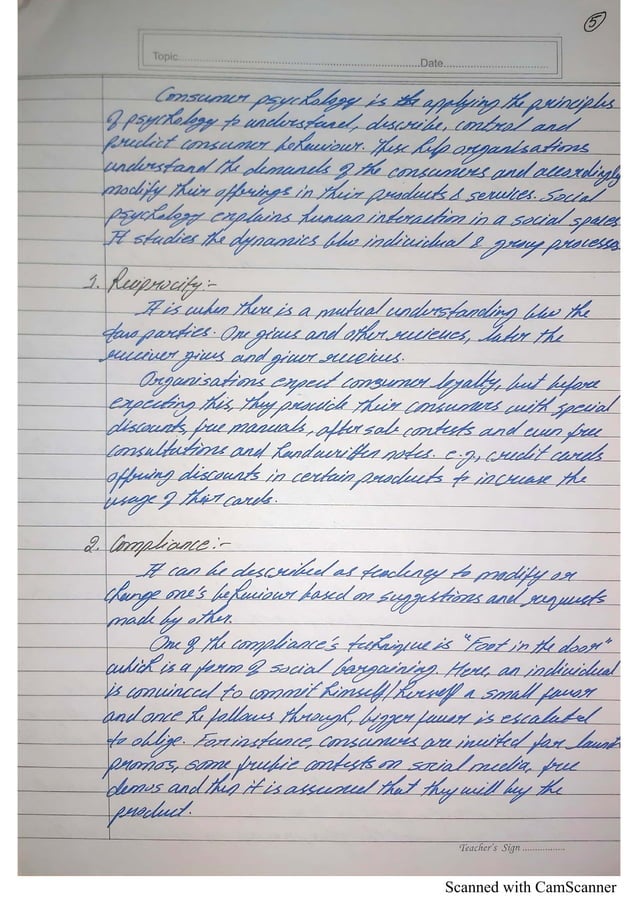 5
Topic
Date
Consumer psychology is the applying the principles
of psychology to understand, describe, control and
predict consumer behaviour. These help organisations
understand the demands of the consumers and accordingly
modify their offerings in their products & services. Social
psychology explains human interaction in a social space.
It studies the dynamics b/w individual & group processes
1. Reciprocity:-
It is when there is a mutual understanding b/w the
two parties. One gives and other receives, later the
receiver gives and giver receives.
Organisations expect consumer loyalty, but before
expecting this, they provide their consumers with special
discounts, free manuals, after sale contests and even free
consultations and handwritten notes. e.g, credit cards
offering discounts in certain products to increase the
usage of their cards.
2. Compliance:-
It can be described as tendency to modify or
change one's behaviour based on suggestions and requests
made by other.
One of the compliance's technique is "Foot in the door"
which is a form of social bargaining. Here, an individual
is convinced to commit himself/herself a small favor
and once he follows through, bigger favor is escalated
to oblige. For instance, consumers are invited for launch
promos, some freebie contests on social media, free
demos and then it is assumed that they will buy the
product.
Teacher's Sign
Scanned with CamScanner